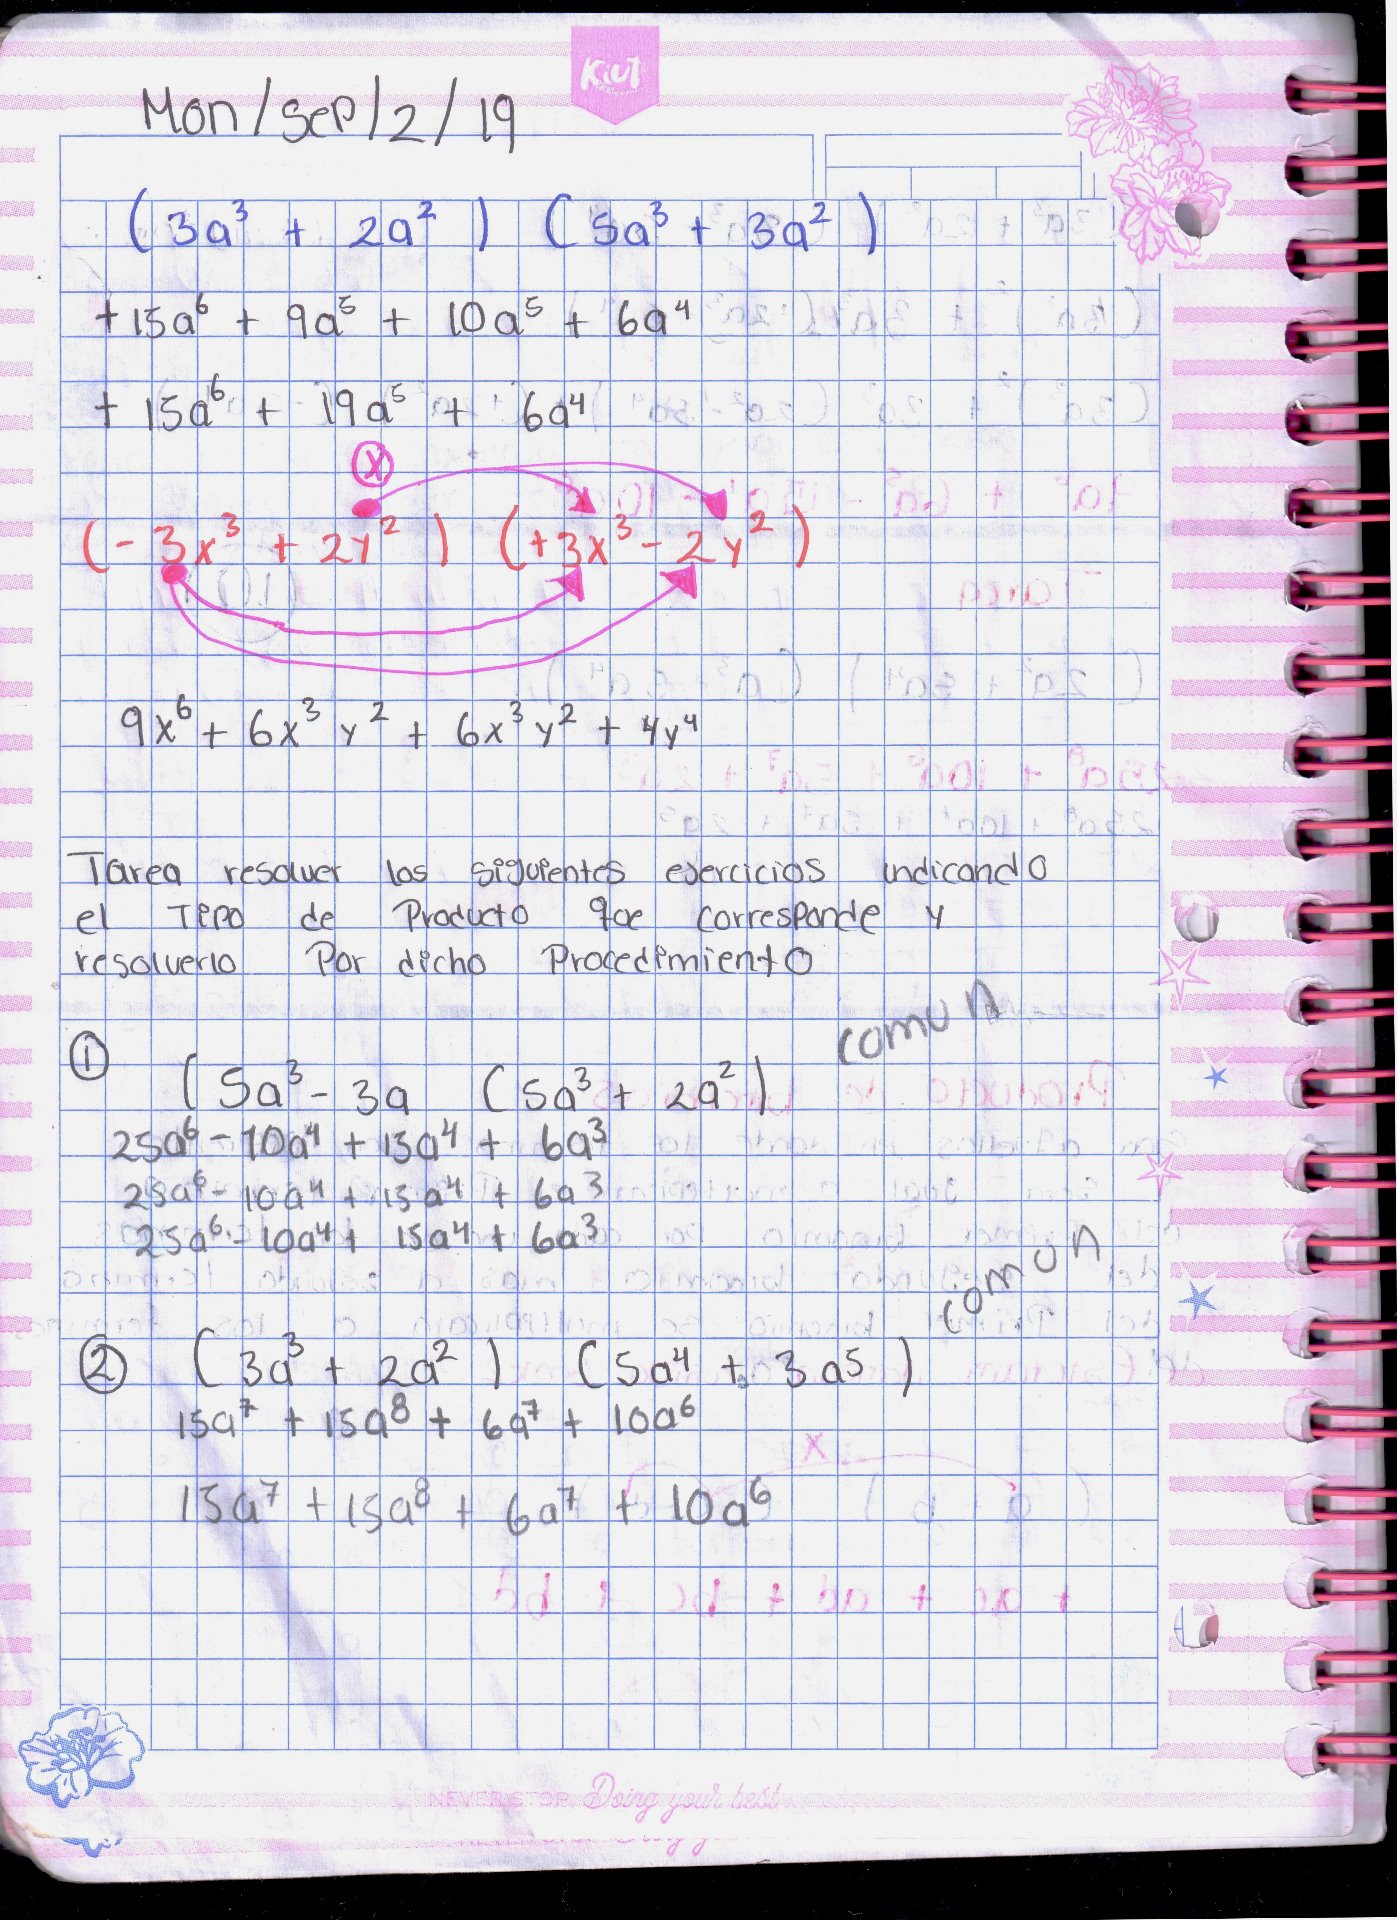 Kiut
Mon/sep/2/19
(3a³ + 2a²) (5a³ + 3a²)
+15a⁶ + 9a⁵ + 10a⁵ + 6a⁴
+ 15a⁶ + 19a⁵ + 6a⁴
x
(-3x³ + 2y²) (+3x³ - 2y²)
9x⁶ + 6x³y² + 6x³y² + 4y⁴
Tarea resolver los siguientes ejercicios indicando
el Tipo de Producto que corresponde y
resolverlo Por dicho Procedimiento
comun
① (5a³ - 3a (5a³ + 2a²)
25a⁶ - 10a⁴ + 15a⁴ + 6a³
25a⁶ - 10a⁴ + 15a⁴ + 6a³
25a⁶ - 10a⁴ + 15a⁴ + 6a³
comun
② (3a³ + 2a²) (5a⁴ + 3a⁵)
15a⁷ + 15a⁸ + 6a⁷ + 10a⁶
15a⁷ + 15a⁸ + 6a⁷ + 10a⁶
NEVER STOP Doing your best